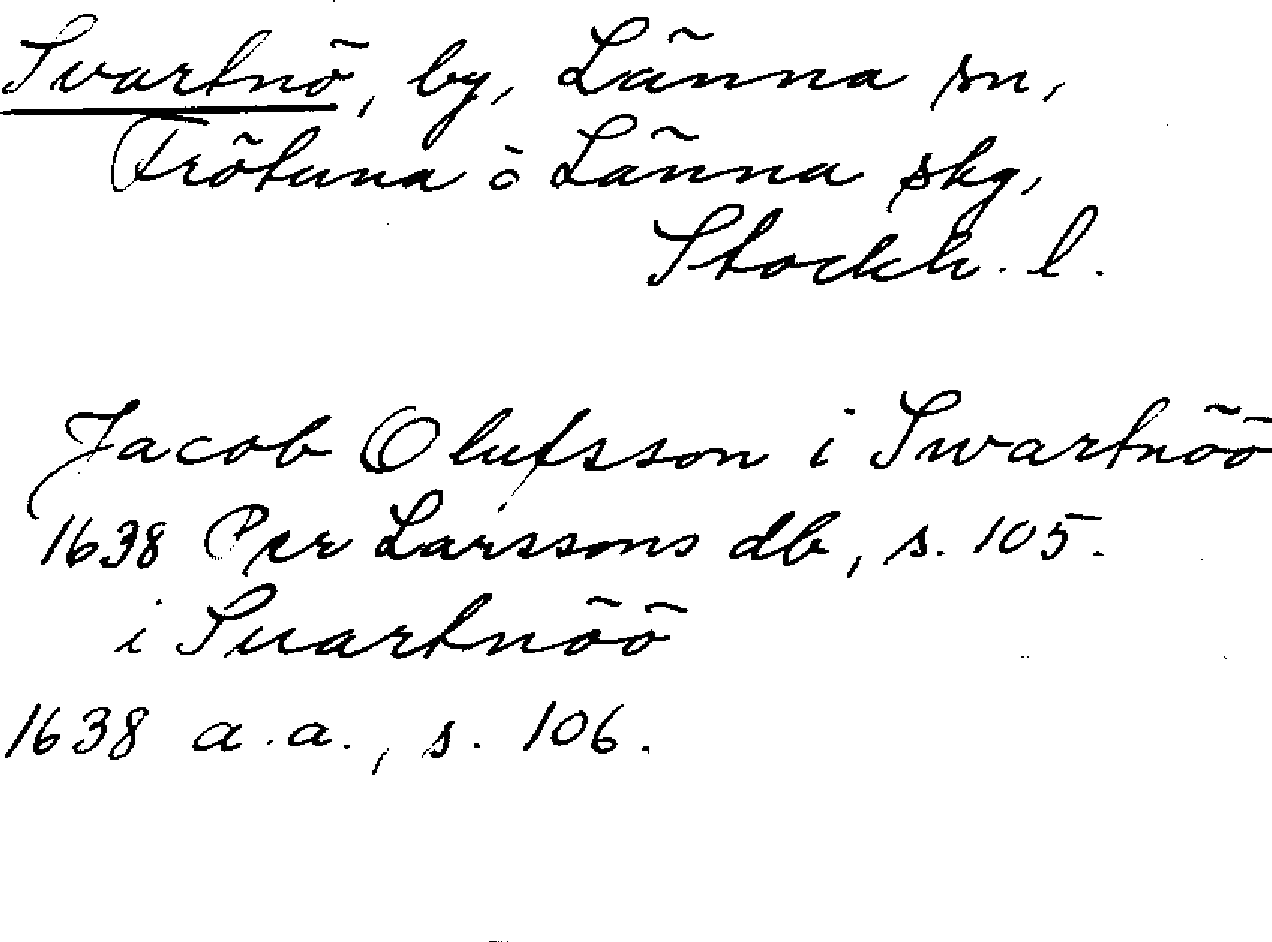 Svartnö, by, Länna sn,
Frötuna o Länna skg,
Stockh. l.
Jacob Olufsson i Swartnöö
1638 Per Larssons db, s. 105.
i Suartnöö
1638 a.a., s. 106.